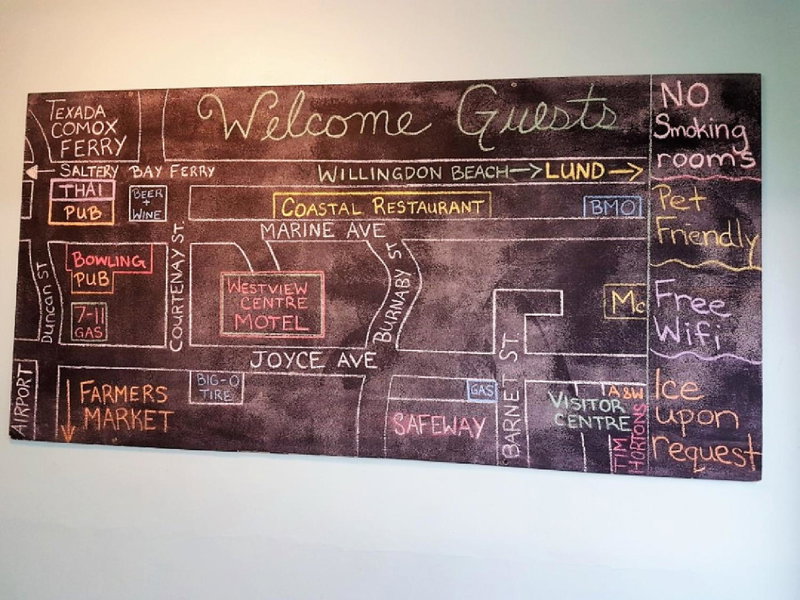 Welcome Guests
TEXADA
COMOX
FERRY
SALTERY BAY FERRY
WILLINGDON BEACH → LUND →
THAI
PUB
BEER
+
WINE
COASTAL RESTAURANT
BMO
MARINE AVE
Duncan ST
BOWLING
PUB
7-11
GAS
COURTENAY ST.
WESTVIEW
CENTRE
MOTEL
BURNABY ST
Mc
JOYCE AVE
AIRPORT
FARMERS
MARKET
BIG-O
TIRE
SAFEWAY
GAS
BARNET ST.
VISITOR
CENTRE
A&W
TIM
HORTONS
NO
Smoking
rooms
Pet
Friendly
Free
Wifi
Ice
upon
request